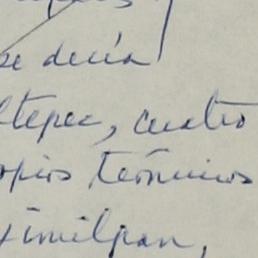 se decía
ltepec, cuatro
opios términos
ximilpan,